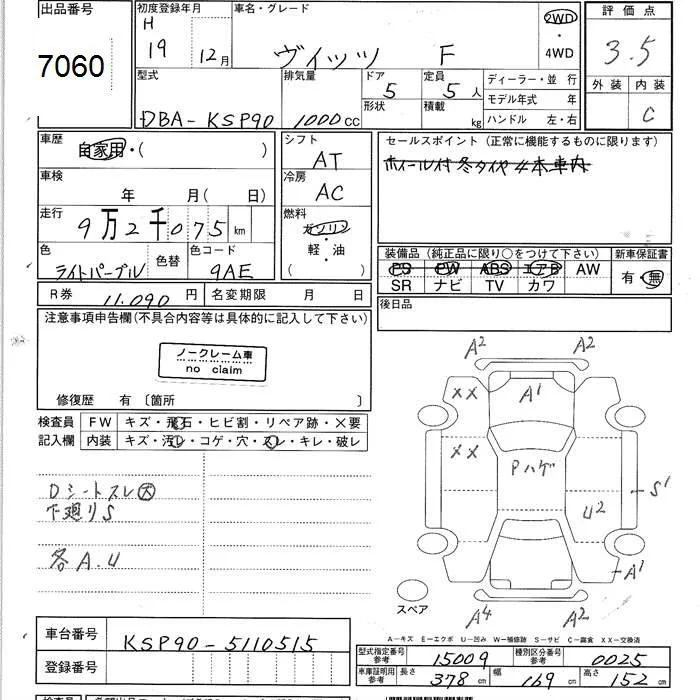 出品番号
7060
初度登録年月 車名・グレード 評価点
H 19 12月 ヴィッツ F 2WD・4WD 3.5
型式 排気量 ドア 定員 ディーラー・並行 外装 内装
DBA-KSP90 1000cc 5 5人 モデル年式 年 C
形状 積載 kg ハンドル 左・右
車歴 自家用・( ) シフト AT セールスポイント(正常に機能するものに限ります)
ホイール付冬タイヤ4本車内
車検 年 月( 日) 冷房 AC
走行 9万2千075km 燃料 ガソリン
軽・油
( )
色 色替 色コード 装備品(純正品に限り○をつけて下さい) 新車保証書
ライトパープル 9AE PS PW ABS エアB AW 有・無
SR ナビ TV カワ
R券 11,090円 名変期限 月 日 後日品
注意事項申告欄(不具合内容等は具体的に記入して下さい)
ノークレーム車
no claim
修復歴 有〔箇所 〕
検査員 FW キズ・飛石・ヒビ割・リペア跡・×要
記入欄 内装 キズ・汚レ・コゲ・穴・スレ・キレ・破レ
Dシートスレ大
下廻りS
各A.U
A2 A2
XX A1
XX Pハゲ
S1
U2
A1
A4 A2
スペア
A-キズ E-エクボ U-凹み W-補修跡 S-サビ C-腐食 XX-交換済
車台番号 KSP90-5110515
登録番号
型式指定番号 参考 15009 種別区分番号 参考 0025
車庫証明用 参考 長さ 378cm 幅 169cm 高さ 152cm